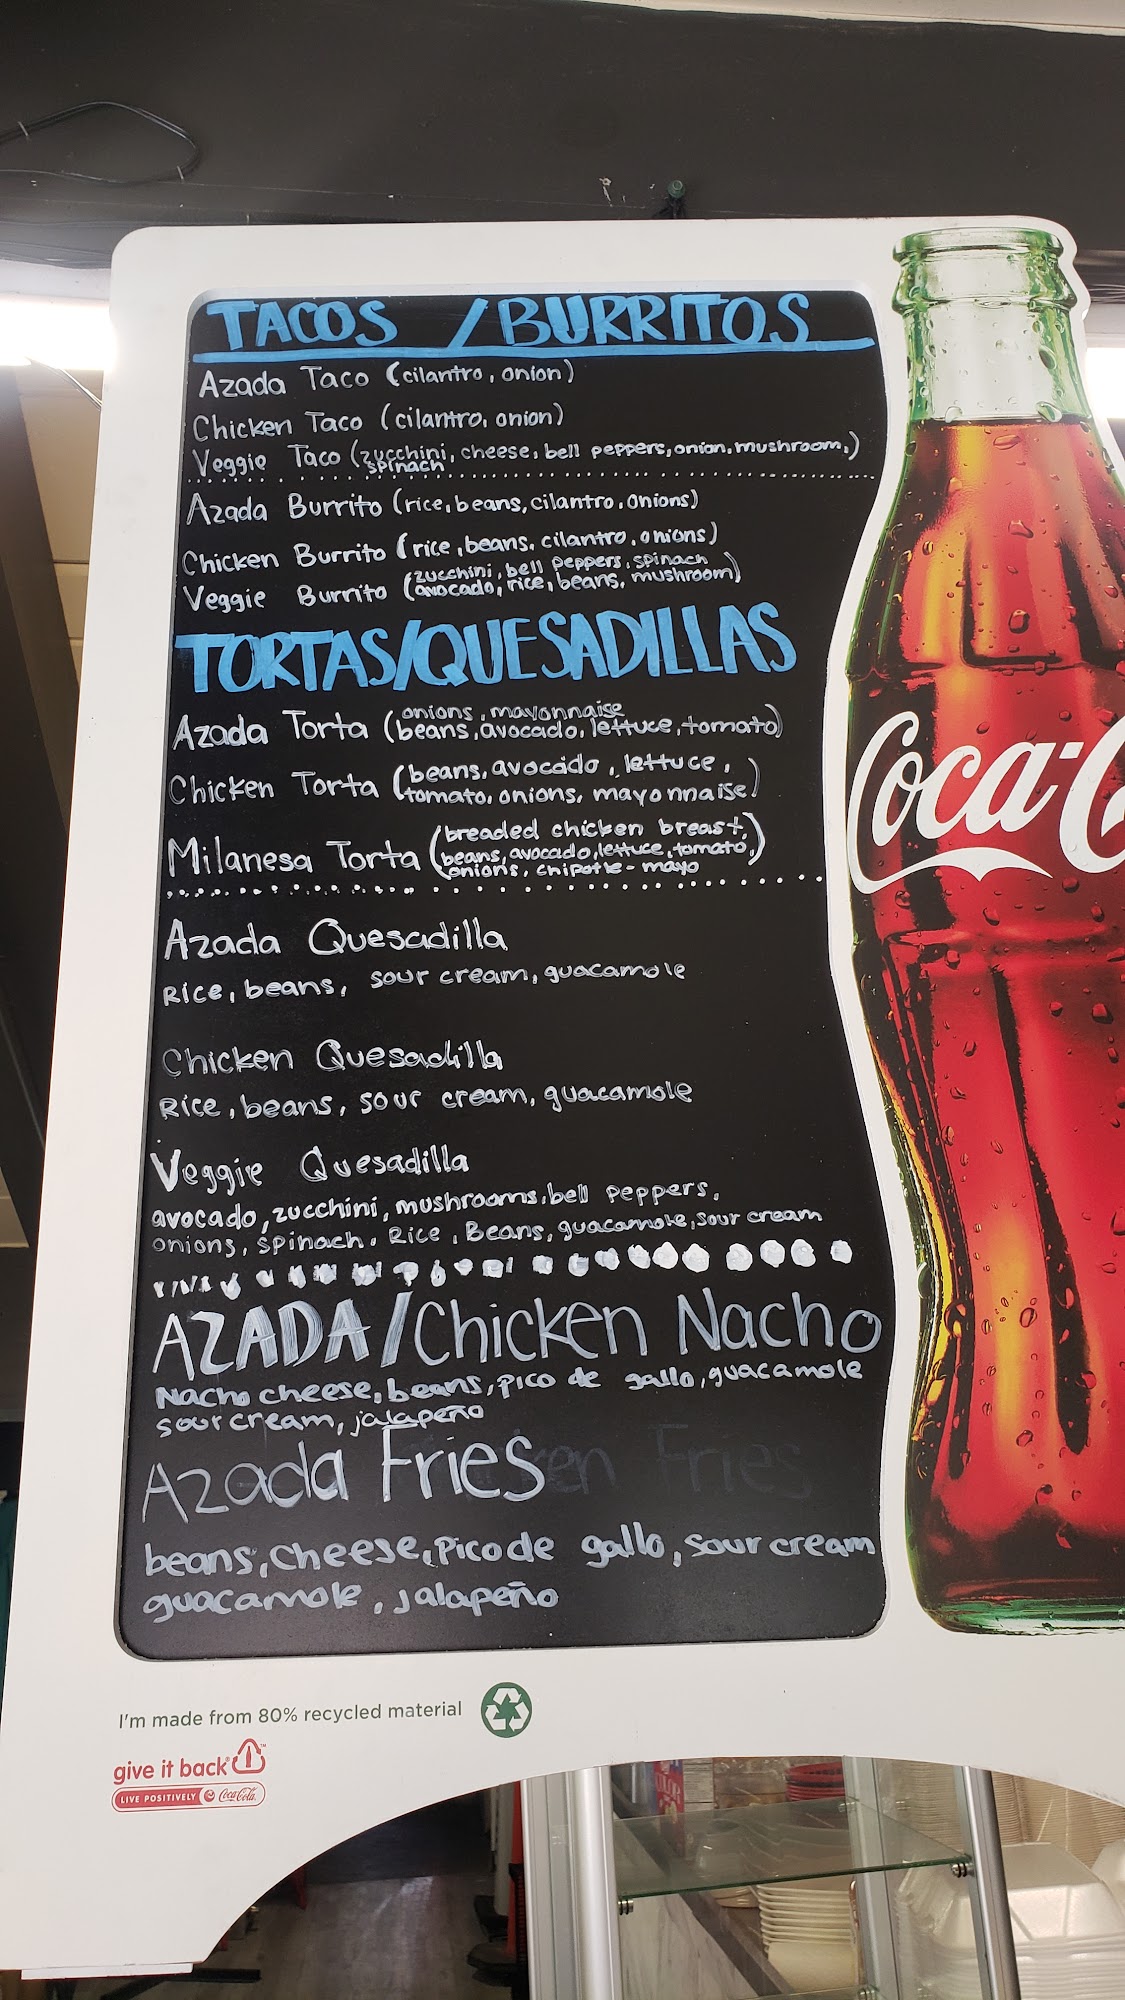 TACOS / BURRITOS
Azada Taco (cilantro, onion)
Chicken Taco (cilantro, onion)
Veggie Taco (zucchini, cheese, bell peppers, onion, mushroom,)
spinach
Azada Burrito (rice, beans, cilantro, onions)
Chicken Burrito (rice, beans, cilantro, onions)
Veggie Burrito (zucchini, bell peppers, spinach
avocado, rice, beans, mushroom)
TORTAS/QUESADILLAS
Azada Torta (onions, mayonnaise
beans, avocado, lettuce, tomato)
Chicken Torta (beans, avocado, lettuce,
tomato, onions, mayonnaise)
Milanesa Torta (breaded chicken breast,
beans, avocado, lettuce, tomato,
onions, chipotle-mayo)
Azada Quesadilla
Rice, beans, sour cream, guacamole
Chicken Quesadilla
Rice, beans, sour cream, guacamole
Veggie Quesadilla
avocado, zucchini, mushrooms, bell peppers,
onions, spinach, Rice, Beans, guacamole, sour cream
AZADA/Chicken Nacho
Nacho cheese, beans, pico de gallo, guacamole
sour cream, jalapeño
Azada Fries
beans, cheese, Pico de gallo, sour cream
guacamole, jalapeño
Coca-C
I'm made from 80% recycled material
give it back
LIVE POSITIVELY Coca-Cola